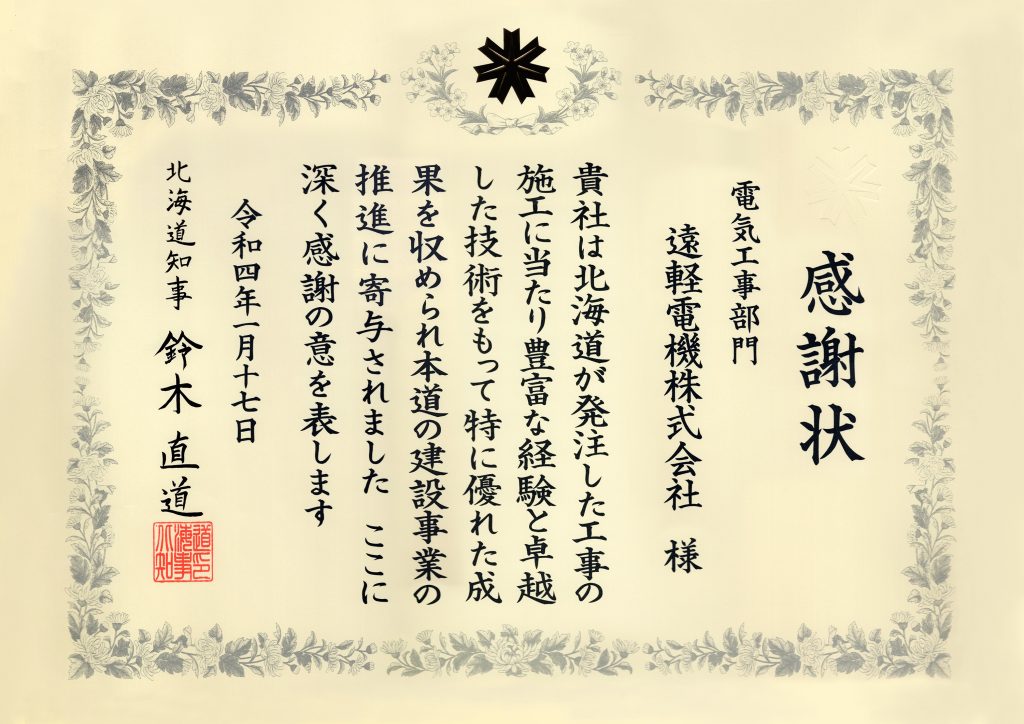 感謝状
電気工事部門
遠軽電機株式会社 様
貴社は北海道が発注した工事の
施工に当たり豊富な経験と卓越
した技術をもって特に優れた成
果を収められ本道の建設事業の
推進に寄与されました ここに
深く感謝の意を表します
令和四年一月十七日
北海道知事 鈴木直道
北海道知事之印